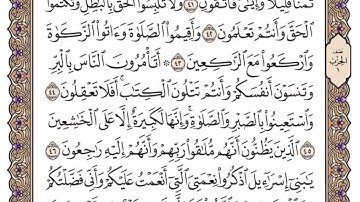 ثَمَنًا قَلِيلًا وَإِيَّٰيَ فَٱتَّقُونِ ٤١ وَلَا تَلْبِسُوا۟ ٱلْحَقَّ بِٱلْبَٰطِلِ وَتَكْتُمُوا۟
ٱلْحَقَّ وَأَنتُمْ تَعْلَمُونَ ٤٢ وَأَقِيمُوا۟ ٱلصَّلَوٰةَ وَءَاتُوا۟ ٱلزَّكَوٰةَ
وَٱرْكَعُوا۟ مَعَ ٱلرَّٰكِعِينَ ٤٣ ۞ أَتَأْمُرُونَ ٱلنَّاسَ بِٱلْبِرِّ
وَتَنسَوْنَ أَنفُسَكُمْ وَأَنتُمْ تَتْلُونَ ٱلْكِتَٰبَ ۚ أَفَلَا تَعْقِلُونَ ٤٤
وَٱسْتَعِينُوا۟ بِٱلصَّبْرِ وَٱلصَّلَوٰةِ ۚ وَإِنَّهَا لَكَبِيرَةٌ إِلَّا عَلَى ٱلْخَٰشِعِينَ
٤٥ ٱلَّذِينَ يَظُنُّونَ أَنَّهُم مُّلَٰقُوا۟ رَبِّهِمْ وَأَنَّهُمْ إِلَيْهِ رَٰجِعُونَ ٤٦
يَٰبَنِىٓ إِسْرَٰٓءِيلَ ٱذْكُرُوا۟ نِعْمَتِىَ ٱلَّتِىٓ أَنْعَمْتُ عَلَيْكُمْ وَأَنِّى فَضَّلْتُكُمْ
نصف
الحزب
١